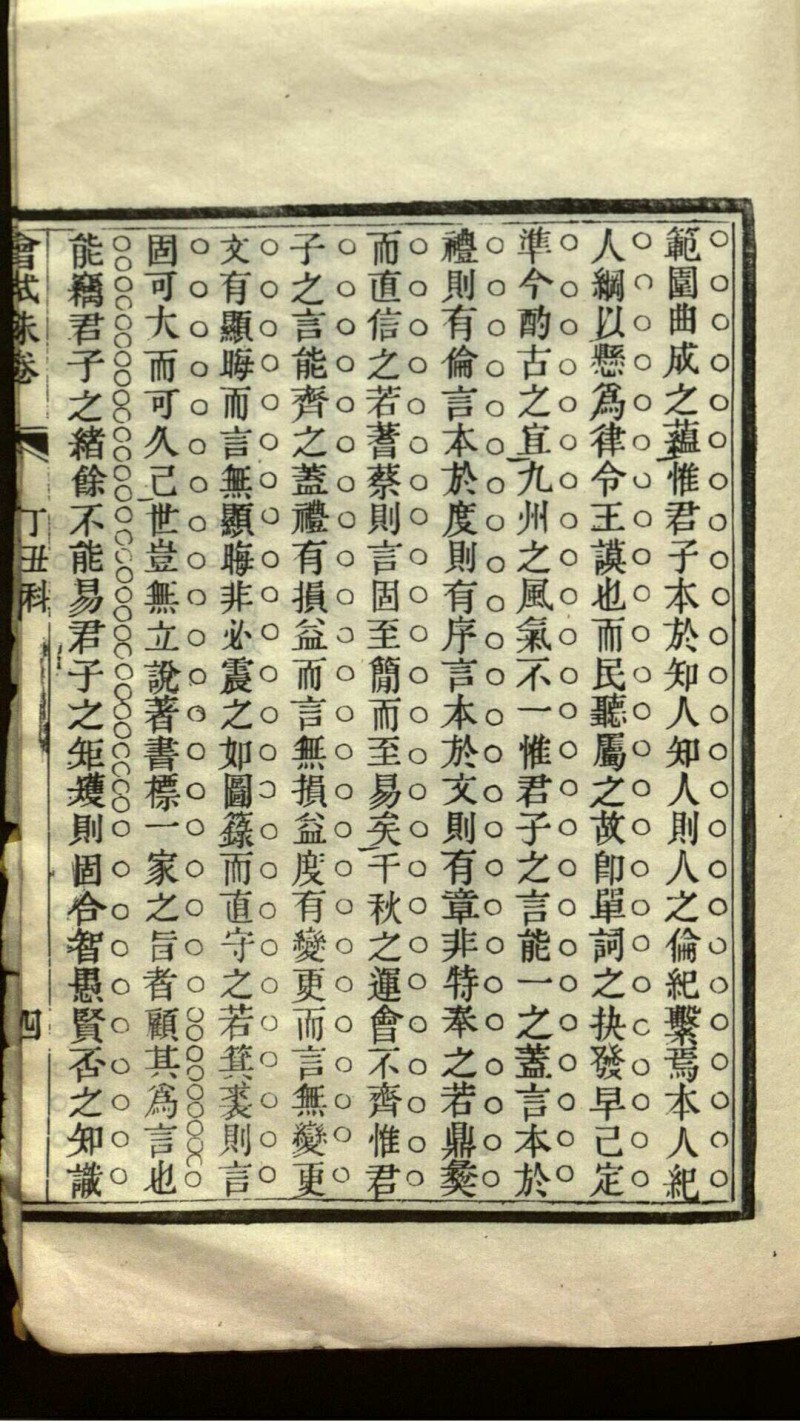 範圍曲成之蘊惟君子本於知人知人則人之倫紀繫焉本人紀
人綱以懸爲律令王謨也而民聽屬之故卽單詞之抉發早已定
準今酌古之宜九州之風氣不一惟君子之言能一之蓋言本於
禮則有倫言本於度則有序言本於文則有章非特奉之若鼎彝
而直信之若蓍蔡則言固至簡而至易矣千秋之運會不齊惟君
子之言能齊之蓋禮有損益而言無損益度有變更而言無變更
文有顯晦而言無顯晦非必震之如圖籙而直守之若箕裘則言
固可大而可久已世豈無立說著書標一家之旨者顧其爲言也
能竊君子之緒餘不能易君子之矩矱則固合智愚賢否之知識
會試硃卷 丁丑科 四